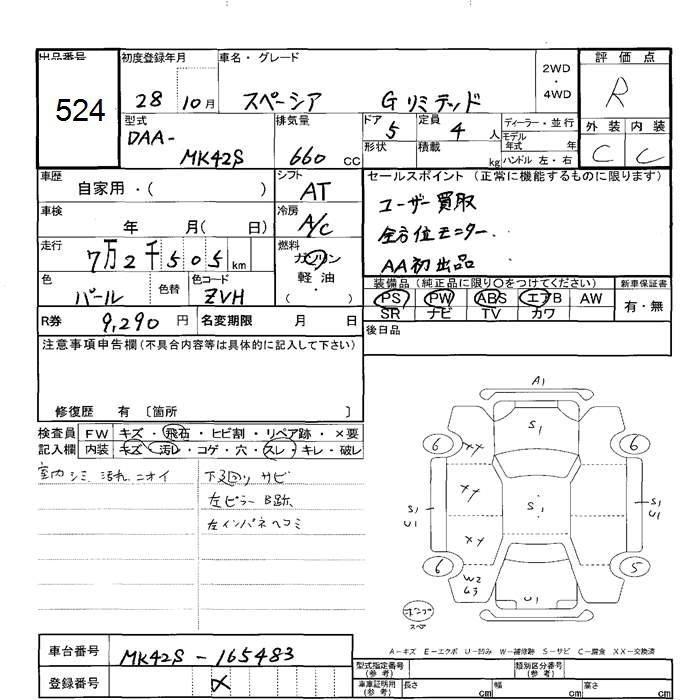 出品番号
524
初度登録年月
28 10月
車名・グレード
スペーシア Gリミテッド
2WD
・
4WD
評価点
R
外装 内装
C C
型式
DAA-
MK42S
排気量
660 CC
ドア
5
定員
4 人
形状
積載 kg
ディーラー・並行
モデル
年式 年
ハンドル 左・右
車歴
自家用・( )
シフト
AT
セールスポイント (正常に機能するものに限ります)
ユーザー買取
全方位モニター.
AA初出品
車検
年 月( 日)
冷房
A/C
走行
7万2千505 km
燃料
ガソリン
軽油
( )
色
パール
色替
色コード
ZVH
装備品 (純正品に限り○をつけてください)
PS PW ABS エアB AW
SR ナビ TV カワ
新車保証書
有・無
R券 9,290 円 名変期限 月 日
後日品
注意事項申告欄(不具合内容等は具体的に記入して下さい)
修復歴 有 〔箇所 〕
検査員 FW キズ・飛石・ヒビ割・リペア跡・×要
記入欄 内装 キズ・汚レ・コゲ・穴・スレ・キレ・破レ
室内シミ 汚れ ニオイ
下廻り サビ
左ピラー B跡
左インパネヘコミ
A1
S1
6 6
XX
XX
S1
S1
U1
S1
U1
XX
6 5
W2
G3
U1
スペ
A-キズ E-エクボ U-凹み W-補修跡 S-サビ C-腐食 XX-交換済
車台番号 MK42S-165483
登録番号 メ
型式指定番号
(参考)
類別区分番号
(参考)
車庫証明用
(参考)
長さ cm 幅 cm 高さ cm